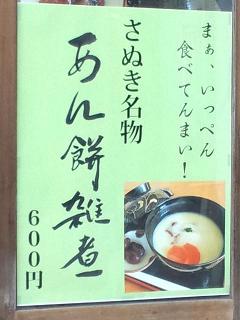 まぁ、いっぺん
食べてんまい！
さぬき名物
あん餅雑煮
600円